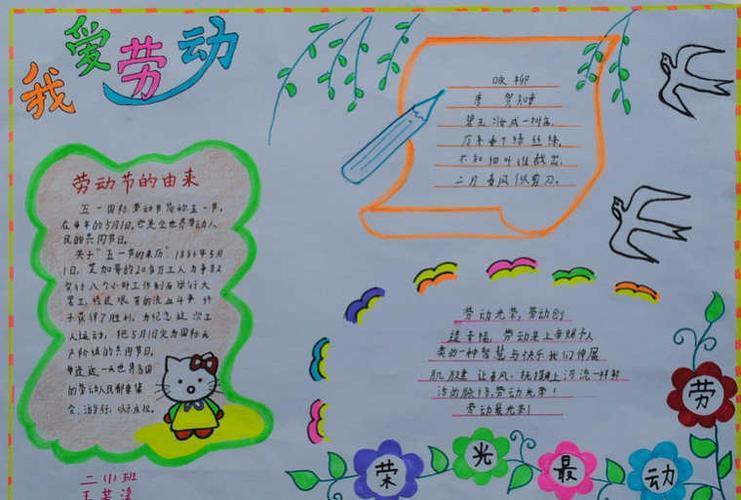 我爱劳动
劳动节的由来
五一国际劳动节简称五一节,
在每年的5月1日。它是全世界劳动人
民的共同节日。
关于“五一节的来历”:1886年5月
1日,芝加哥的20多万工人为争取
实行八个小时工作制而举行大
罢工,经过艰苦的流血斗争,终
于获得了胜利。为纪念这次工
人运动,把5月1日定为国际无
产阶级的共同节日。
每逢这一天世界各国
的劳动人民都要集
会、游行,以示庆祝。
二小班
咏柳
唐 贺知章
碧玉妆成一树高,
万条垂下绿丝绦。
不知细叶谁裁出,
二月春风似剪刀。
劳动光荣,劳动创
造幸福,劳动是上帝赐予人
类的一种智慧与快乐
肌腱 让春风
劳动光荣!
劳动最光荣!
劳动最光荣